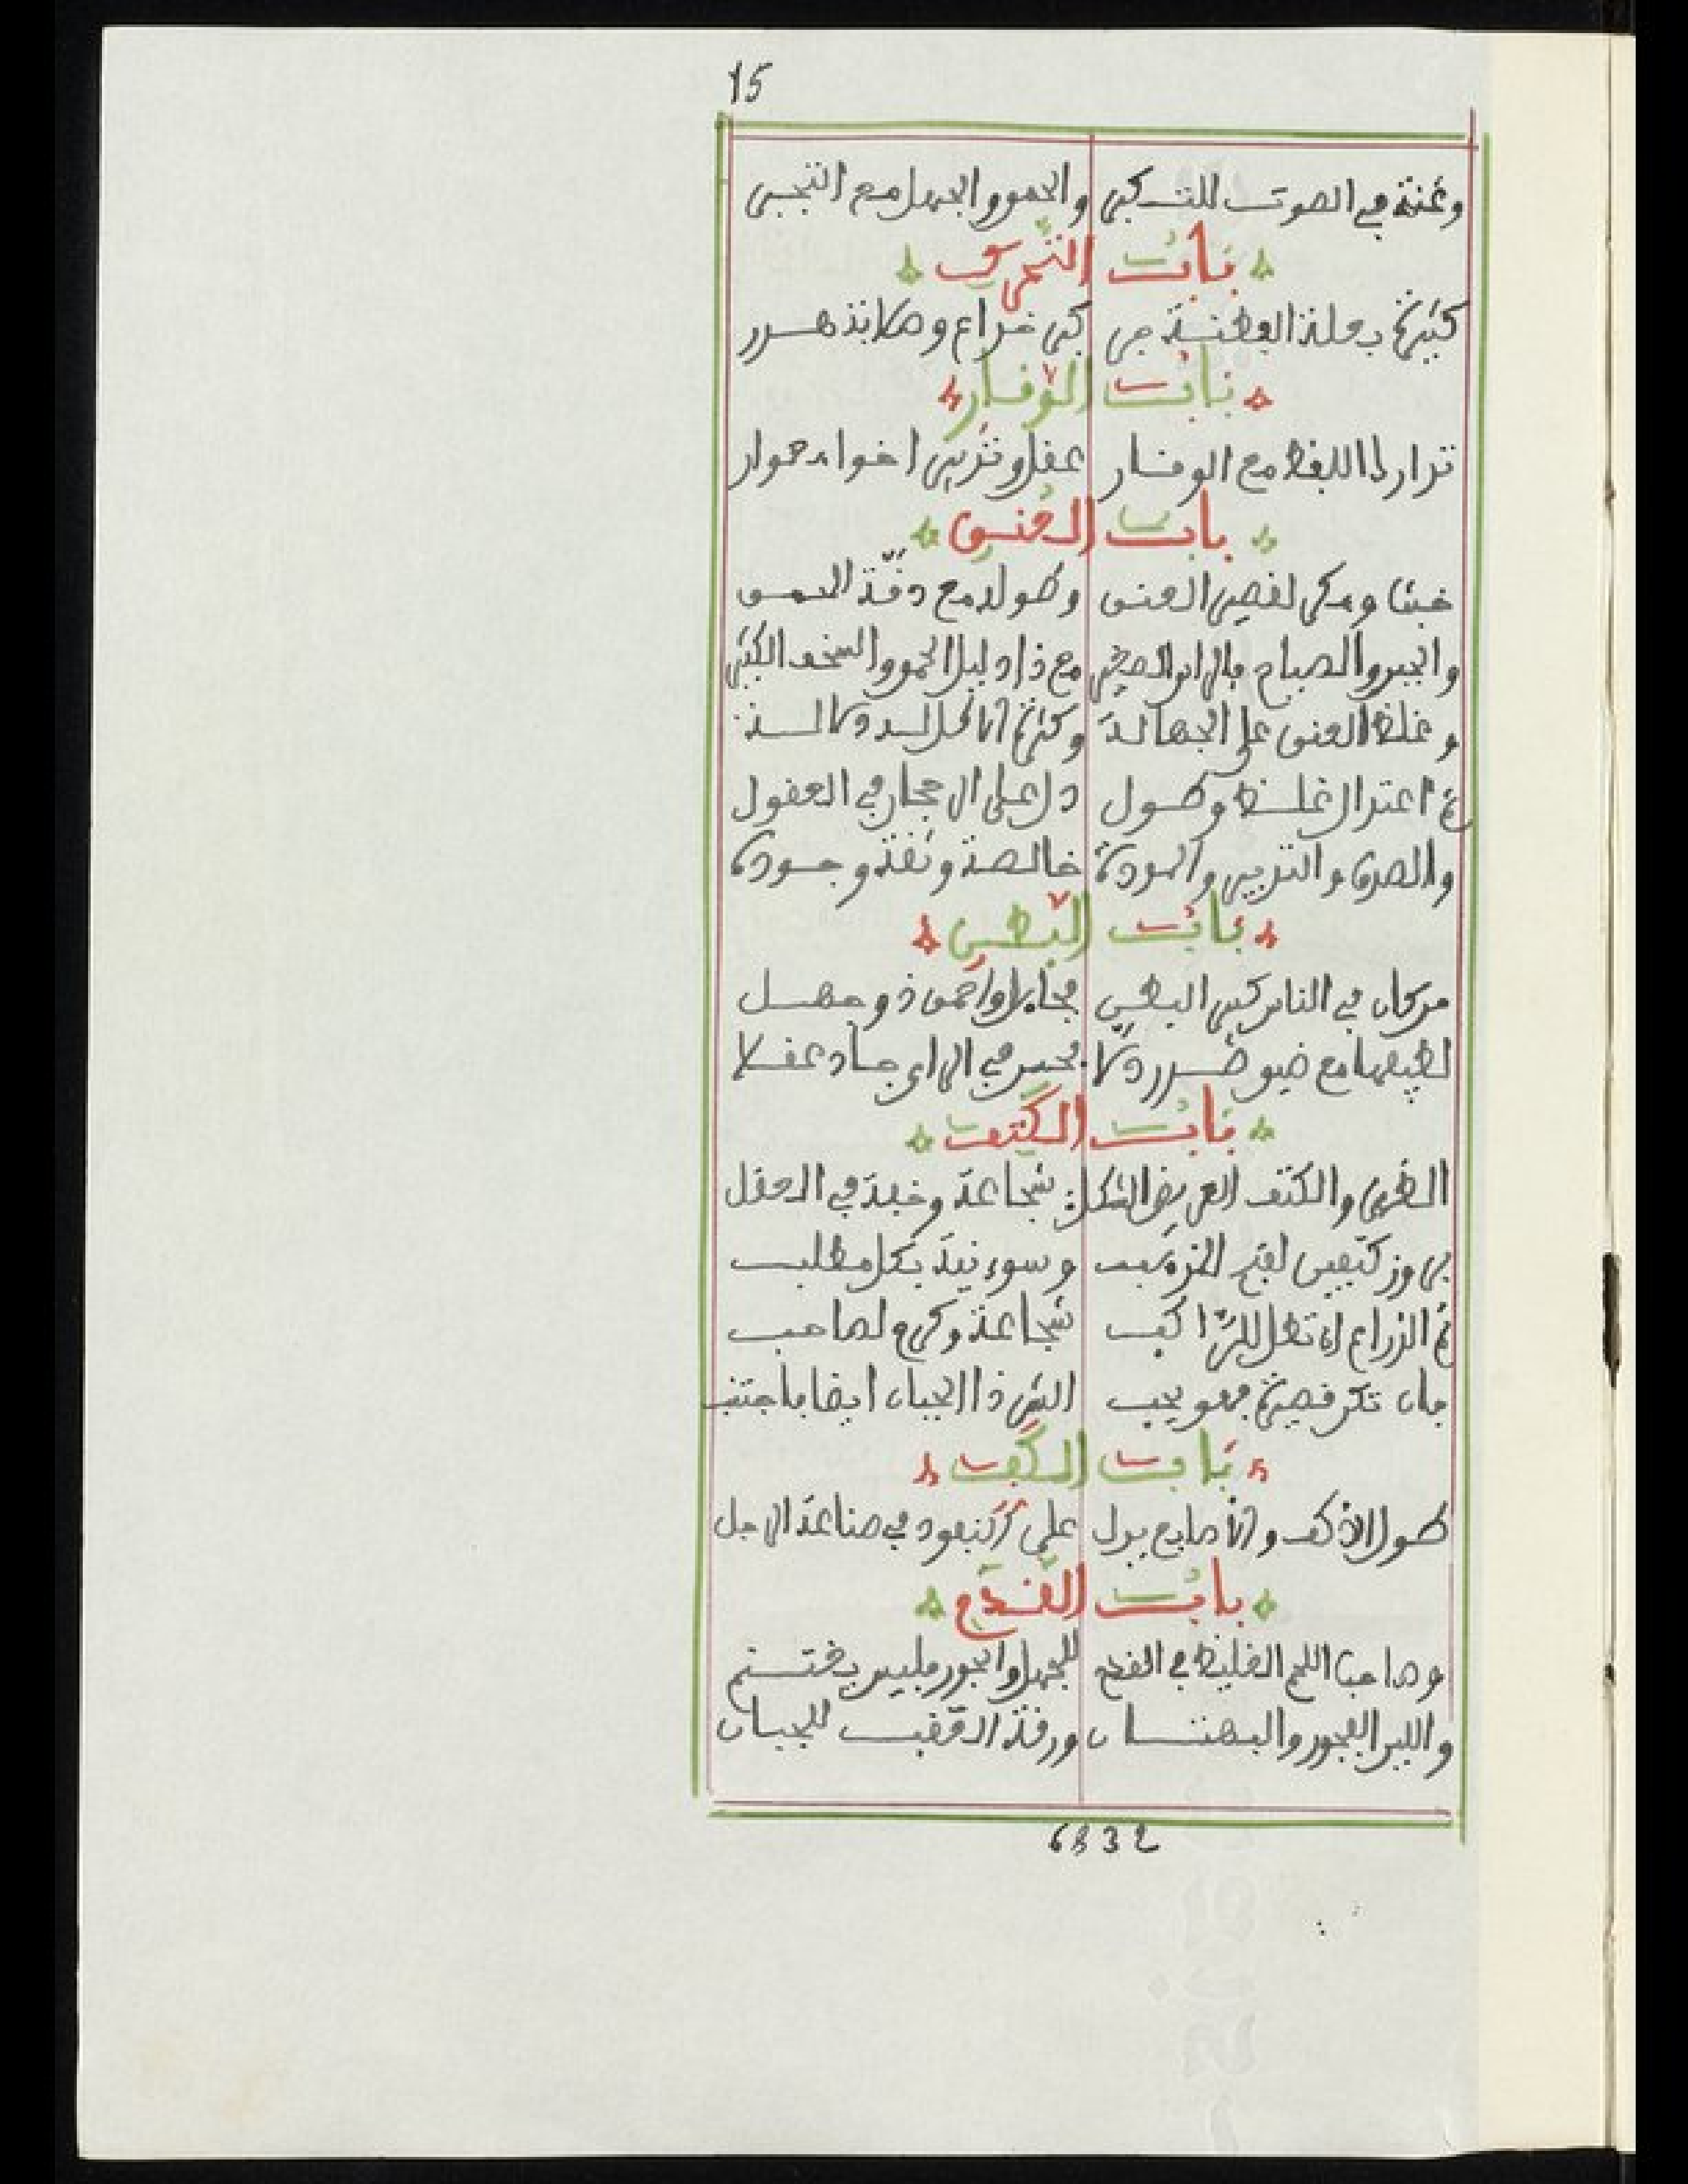 15
وغنة في الصوت للتكبر والحمق والجهل مع التجبر
باب التحرك
كثيرة بعلة الفطنة جر كبر خداع ومكابد هدر
باب الوقار
تدارك اللفظ مع الوقار عقل وتدبير اخو احوار
باب العنق
خبثا ومكر لقصير العنق وطوله مع دقة الحمق
والجبن والصياح فالراس الصغير مع ذا دليل الحمق والسخف الكثير
وغلظ العنق على الجهالة وكثرة الاكل له دلالة
ثم اعتدال غلظ وطول دل على الرجحان في العقول
والصدق والتدبير والمودة خالصة وثقة وجودة
باب البطن
من كان في الناس كبير البطن فجاهل واحمق ذو جهل
لطيفها مع ضيق صدر دلا بحسن في الراي جاد عقلا
باب الكتف
الظهر والكتف العريض الشكل شجاعة وخفة في العقل
بروز كتفين لقبح المذهب وسوء نية بكل مطلب
ثم الذراع ان تطل للراكب شجاعة وكرم لصاحب
فان تكن قصيرة فهو يحب الشر ذا الجبان ايضا فاجتنب
باب الكف
طول الاكف والاصابع يدل على النفوذ في صناعة الرجل
باب القدم
وصاحب اللحم الغليظ في القدم للجهل والجور فليس يختتم
واللين الفجور والبهتان ورقة العقب للجبان
6832